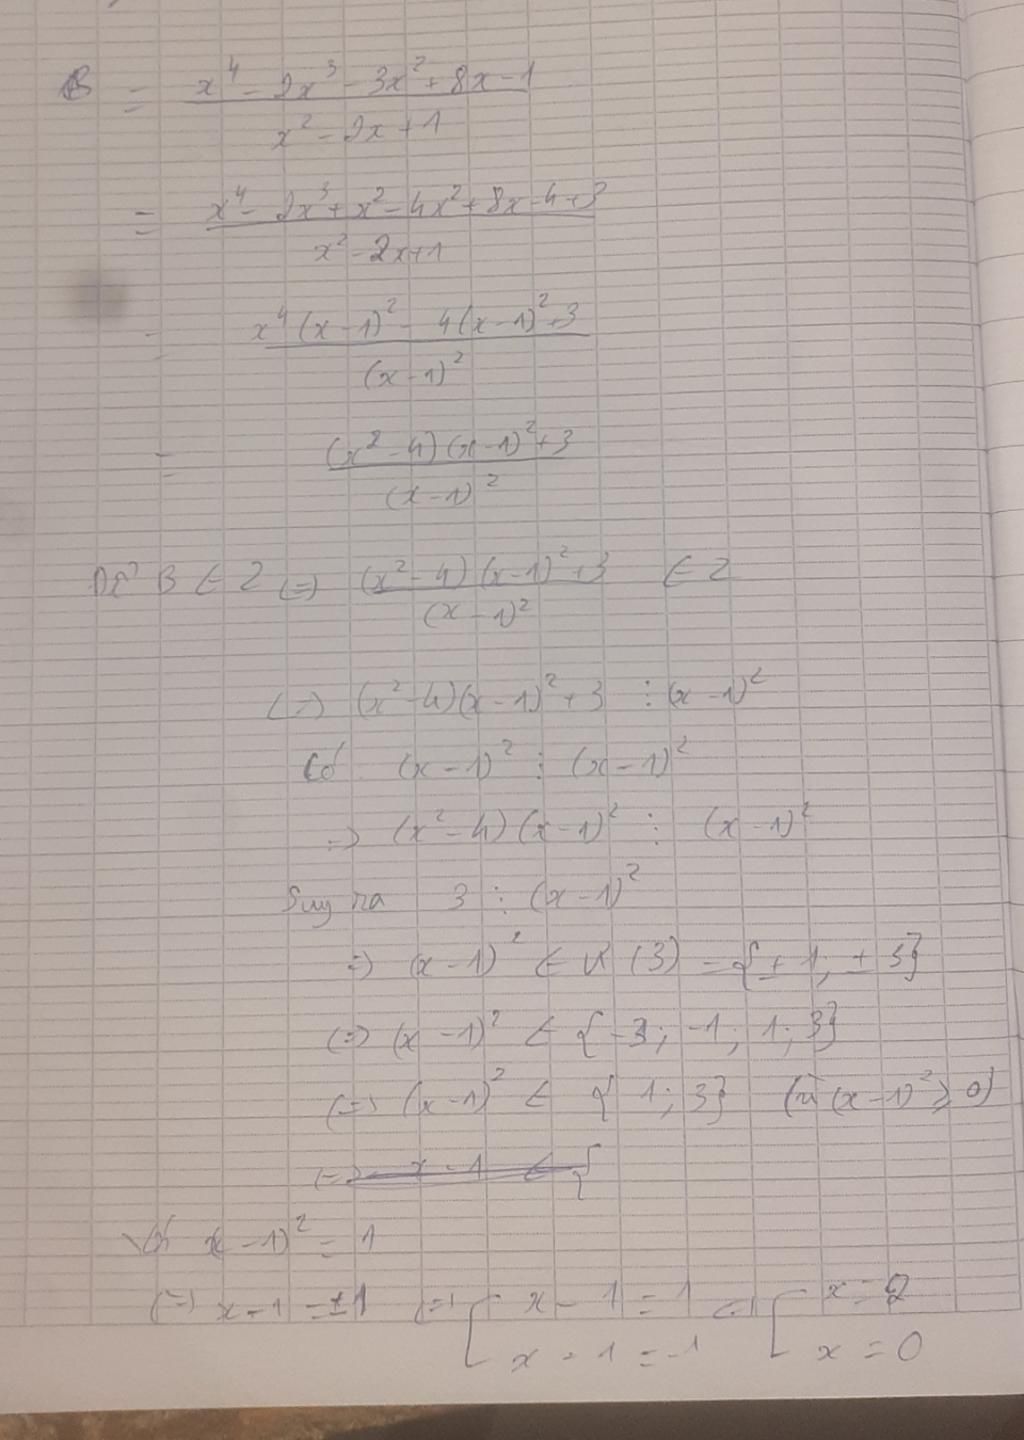 B = (x⁴ - 2x³ - 3x² + 8x - 1) / (x² - 2x + 1)
= (x⁴ - 2x³ + x² - 4x² + 8x - 4 + 3) / (x² - 2x + 1)
= (x⁴(x - 1)² - 4(x - 1)² + 3) / (x - 1)²
= ((x² - 4)(x - 1)² + 3) / (x - 1)²
Để B ∈ Z (=) ((x² - 4)(x - 1)² + 3) / (x - 1)² ∈ Z
(=) (x² - 4)(x - 1)² + 3 ⋮ (x - 1)²
Có (x - 1)² ⋮ (x - 1)²
=> (x² - 4)(x - 1)² ⋮ (x - 1)²
Suy ra 3 ⋮ (x - 1)²
=> (x - 1)² ∈ Ư(3) = {± 1; ± 3}
(=) (x - 1)² ∈ {-3; -1; 1; 3}
(=) (x - 1)² ∈ {1; 3} (vì (x - 1)² ≥ 0)
(=) x - 1 ∈ {
Với (x - 1)² = 1
(=) x - 1 = ±1 (=) [ x - 1 = 1 (=) [ x = 2
x - 1 = -1 x = 0